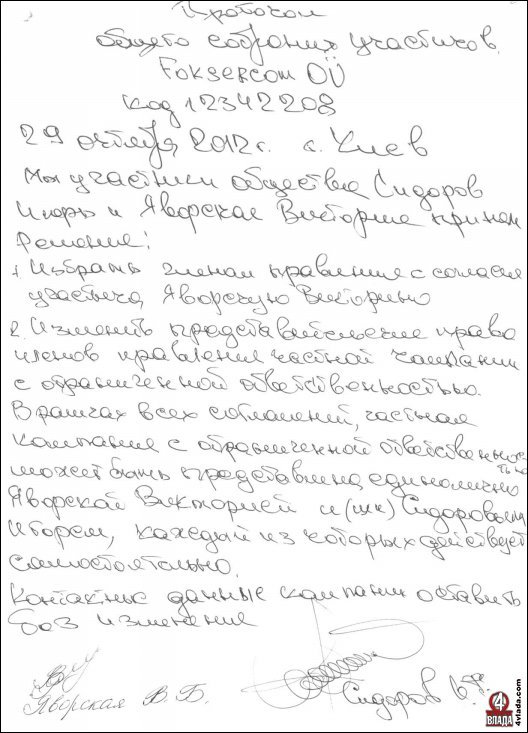 Протокол
общего собрания участников
Foksercom OÜ
Код 12342208
29 октября 2012 г. г. Киев
Мы участники общества Сидоров
Игорь и Яворская Виктория приняли
Решение:
1 Избрать членом правления с согласия
участника Яворскую Викторию
2. Изменить представительские права
членов правления частной компании
с ограниченной ответственностью.
В рамках всех соглашений, частная
компания с ограниченной ответственностью
может быть представлена единолично
Яворской Викторией и (или) Сидоровым
Игорем, каждый из которых действует
самостоятельно.
Контактные данные компании оставить
без изменения
Яворская В. Б.
Сидоров
4 ВЛАДА
4vlada.com